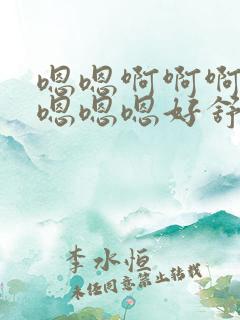 嗯嗯啊啊啊
嗯嗯嗯好舒
李水恒
未经同意禁止转载